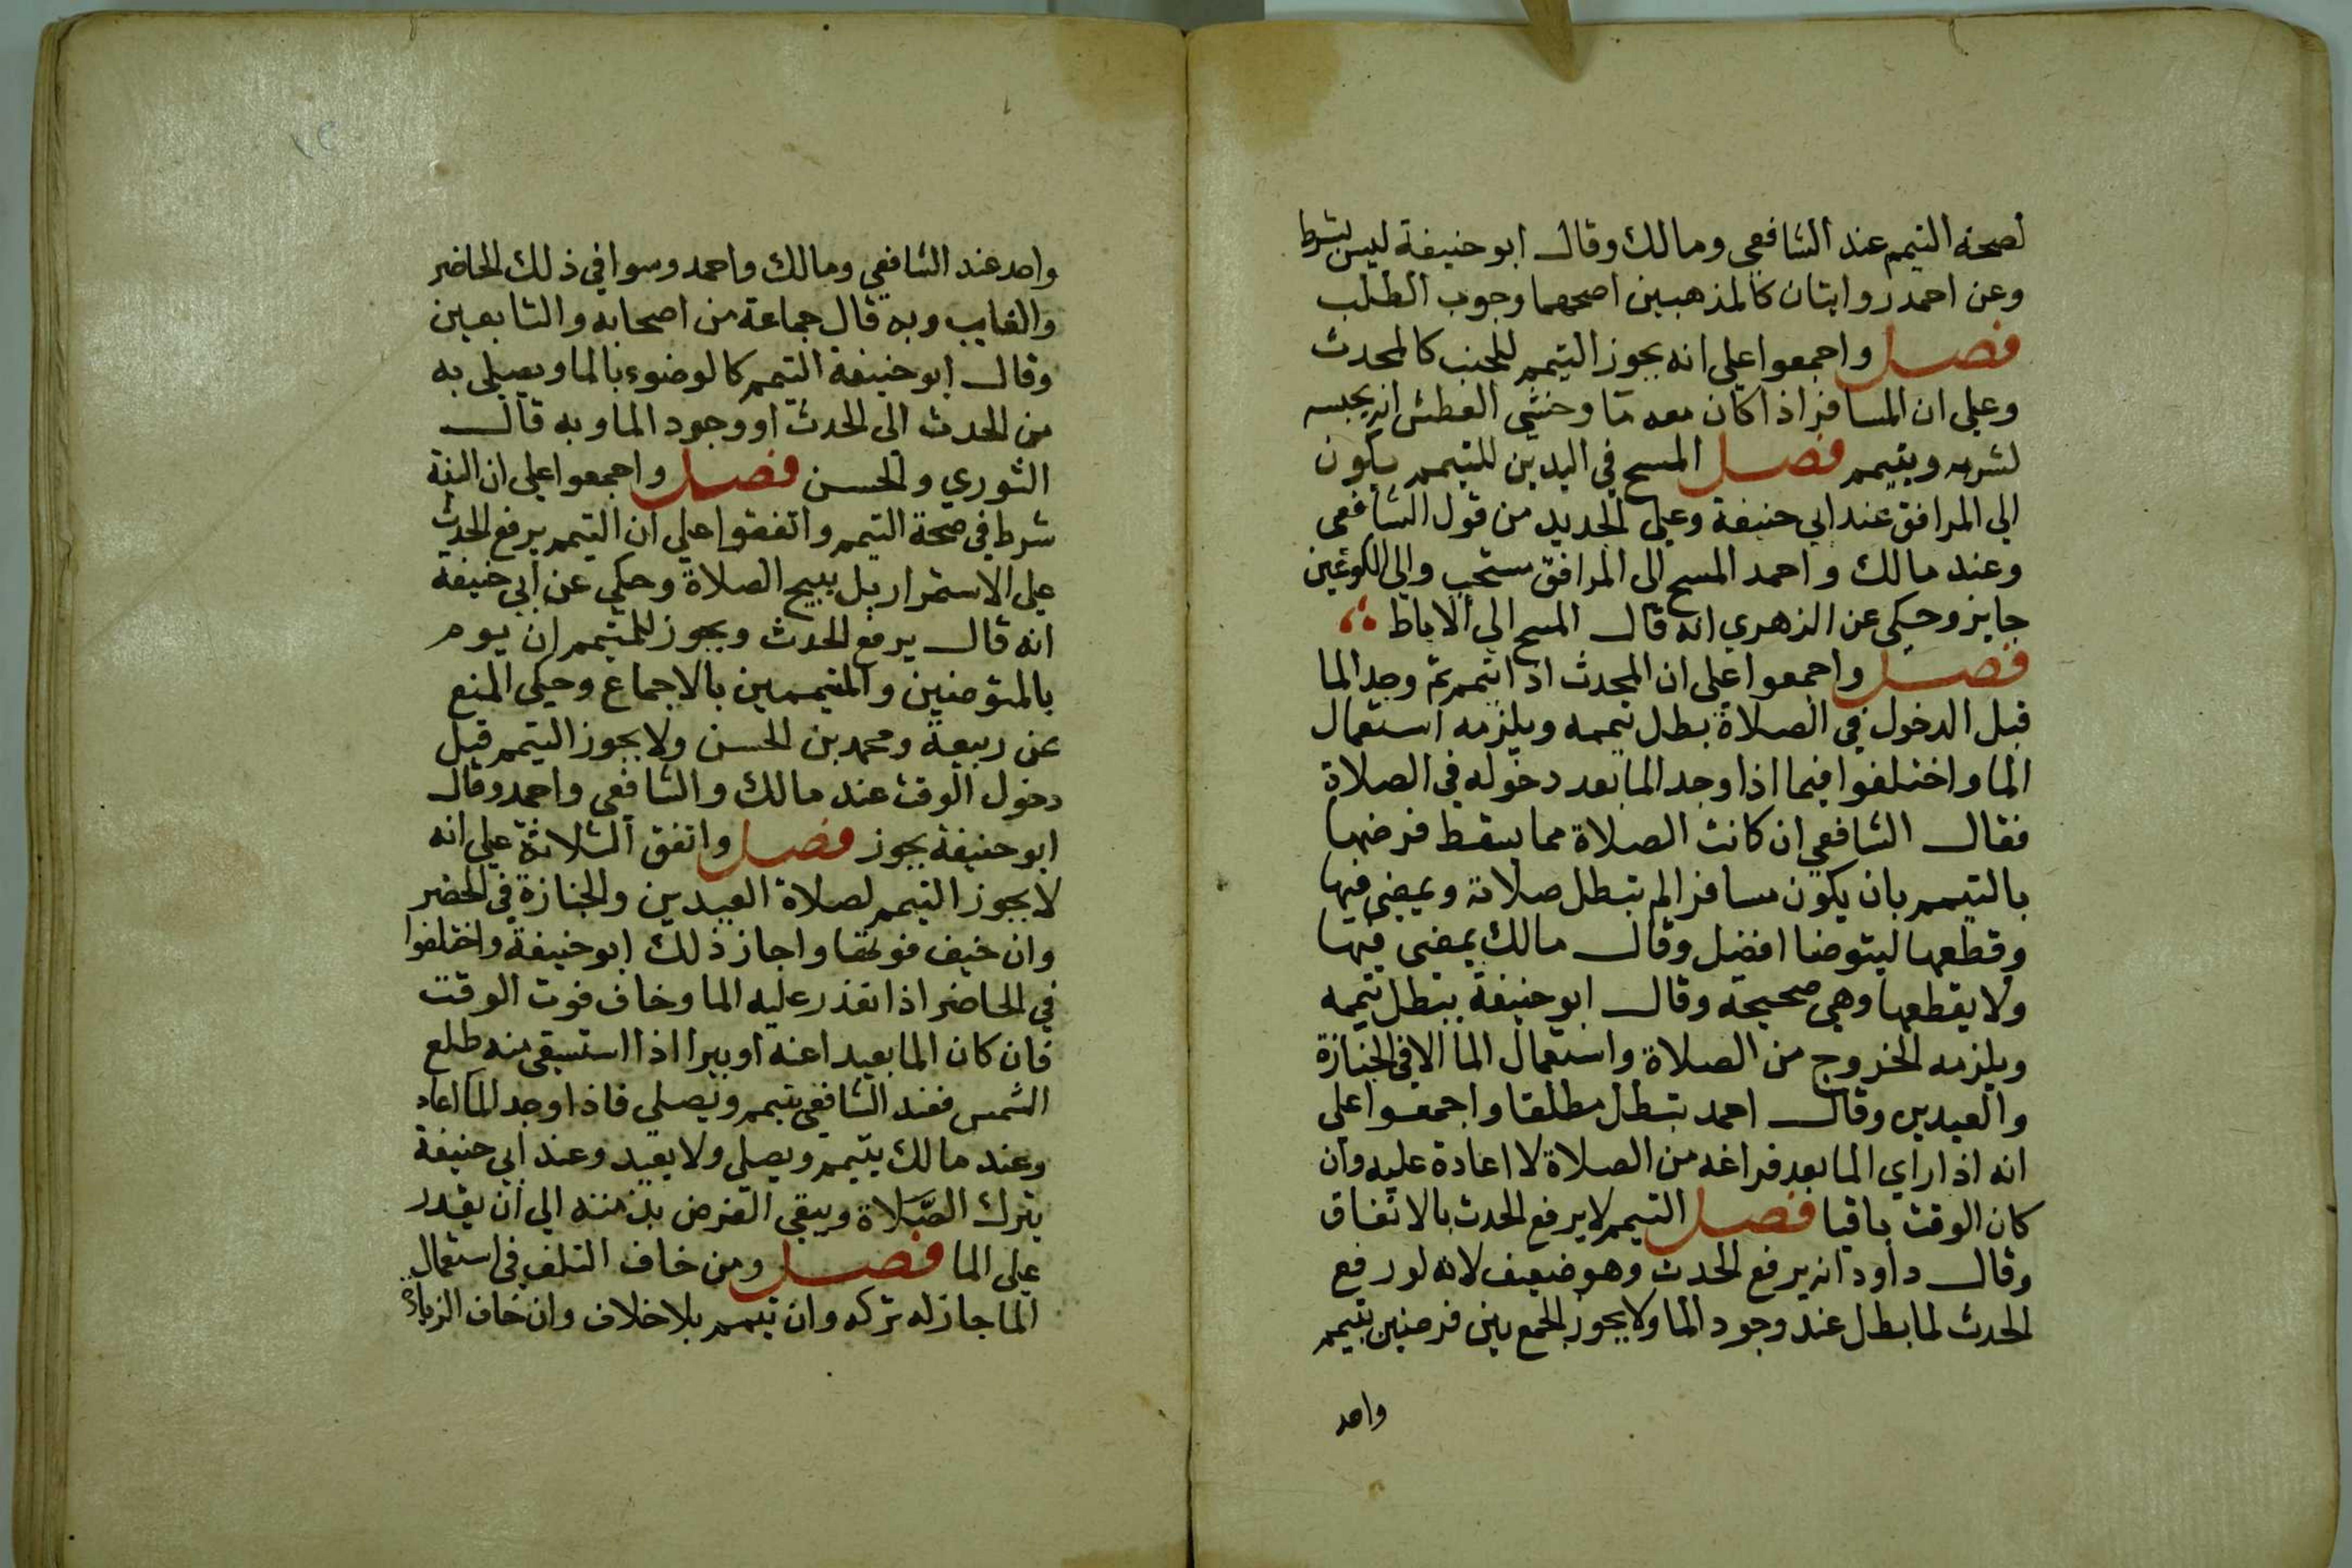 لصحة التيمم عند الشافعي ومالك وقال ابو حنيفة ليس بشرط
وعن احمد روايتان كالمذهبين اصحهما وجوب الطلب
فصل واجمعوا على انه يجوز التيمم للجنب كالمحدث
وعلى ان المسافر اذا كان معه ما وخشي العطش انه يحبسه
لشربه ويتيمم فصل المسح في اليدين للتيمم يكون
الى المرافق عند ابي حنيفة وعلى الجديد من قول الشافعي
وعند مالك واحمد المسح الى المرافق مستحب والى الكوعين
جايز وحكى عن الزهري انه قال المسح الى الاباط
فصل واجمعوا على ان المحدث اذا تيمم ثم وجد الما
قبل الدخول في الصلاة بطل تيممه ويلزمه استعمال
الما واختلفوا فيما اذا وجد الما بعد دخوله في الصلاة
فقال الشافعي ان كانت الصلاة مما يسقط فرضها
بالتيمم بان يكون مسافرا لم تبطل صلاته ويمضي فيها
وقطعها ليتوضا افضل وقال مالك يمضي فيها
ولا يقطعها وهي صحيحة وقال ابو حنيفة يبطل تيممه
ويلزمه الخروج من الصلاة واستعمال الما الا في الجنازة
والعيدين وقال احمد تبطل مطلقا واجمعوا على
انه اذا راي الما بعد فراغه من الصلاة لا اعادة عليه وان
كان الوقت باقيا فصل التيمم لا يرفع الحدث بالاتفاق
وقال داود انه يرفع الحدث وهو ضعيف لانه لو رفع
الحدث لما بطل عند وجود الما ولا يجوز الجمع بين فرضين بتيمم
واحد
واحد عند الشافعي ومالك واحمد وسوا في ذلك الحاضر
والغايب وبه قال جماعة من اصحابه والتابعين
وقال ابو حنيفة التيمم كالوضوء بالما ويصلي به
من الحدث الى الحدث او وجود الما وبه قال
الثوري والحسن فصل واجمعوا على ان النية
شرط في صحة التيمم واتفقوا على ان التيمم يرفع الحدث
على الاستمرار بل يبيح الصلاة وحكي عن ابي حنيفة
انه قال يرفع الحدث ويجوز للمتيمم ان يوم
بالمتوضين والمتيممين بالاجماع وحكى المنع
عن ربيعة ومحمد بن الحسن ولا يجوز التيمم قبل
دخول الوقت عند مالك والشافعي واحمد وقال
ابو حنيفة يجوز فصل واتفق الثلاثة على انه
لا يجوز التيمم لصلاة العيدين والجنازة في الحضر
وان خيف فوتهما واجاز ذلك ابو حنيفة واختلفوا
في الحاضر اذا تعذر عليه الما وخاف فوت الوقت
فان كان الما بعيدا عنه او بيرا اذا استسقى منه طلع
الشمس فعند الشافعي يتيمم ويصلي فاذا وجد الما اعاد
وعند مالك يتيمم ويصلي ولا يعيد وعند ابي حنيفة
يترك الصلاة ويبقي الفرض بذمته الى ان يقدر
على الما فصل ومن خاف التلف في استعمال
الما جاز له تركه وان تيمم بلا خلاف وان خاف الزيادة